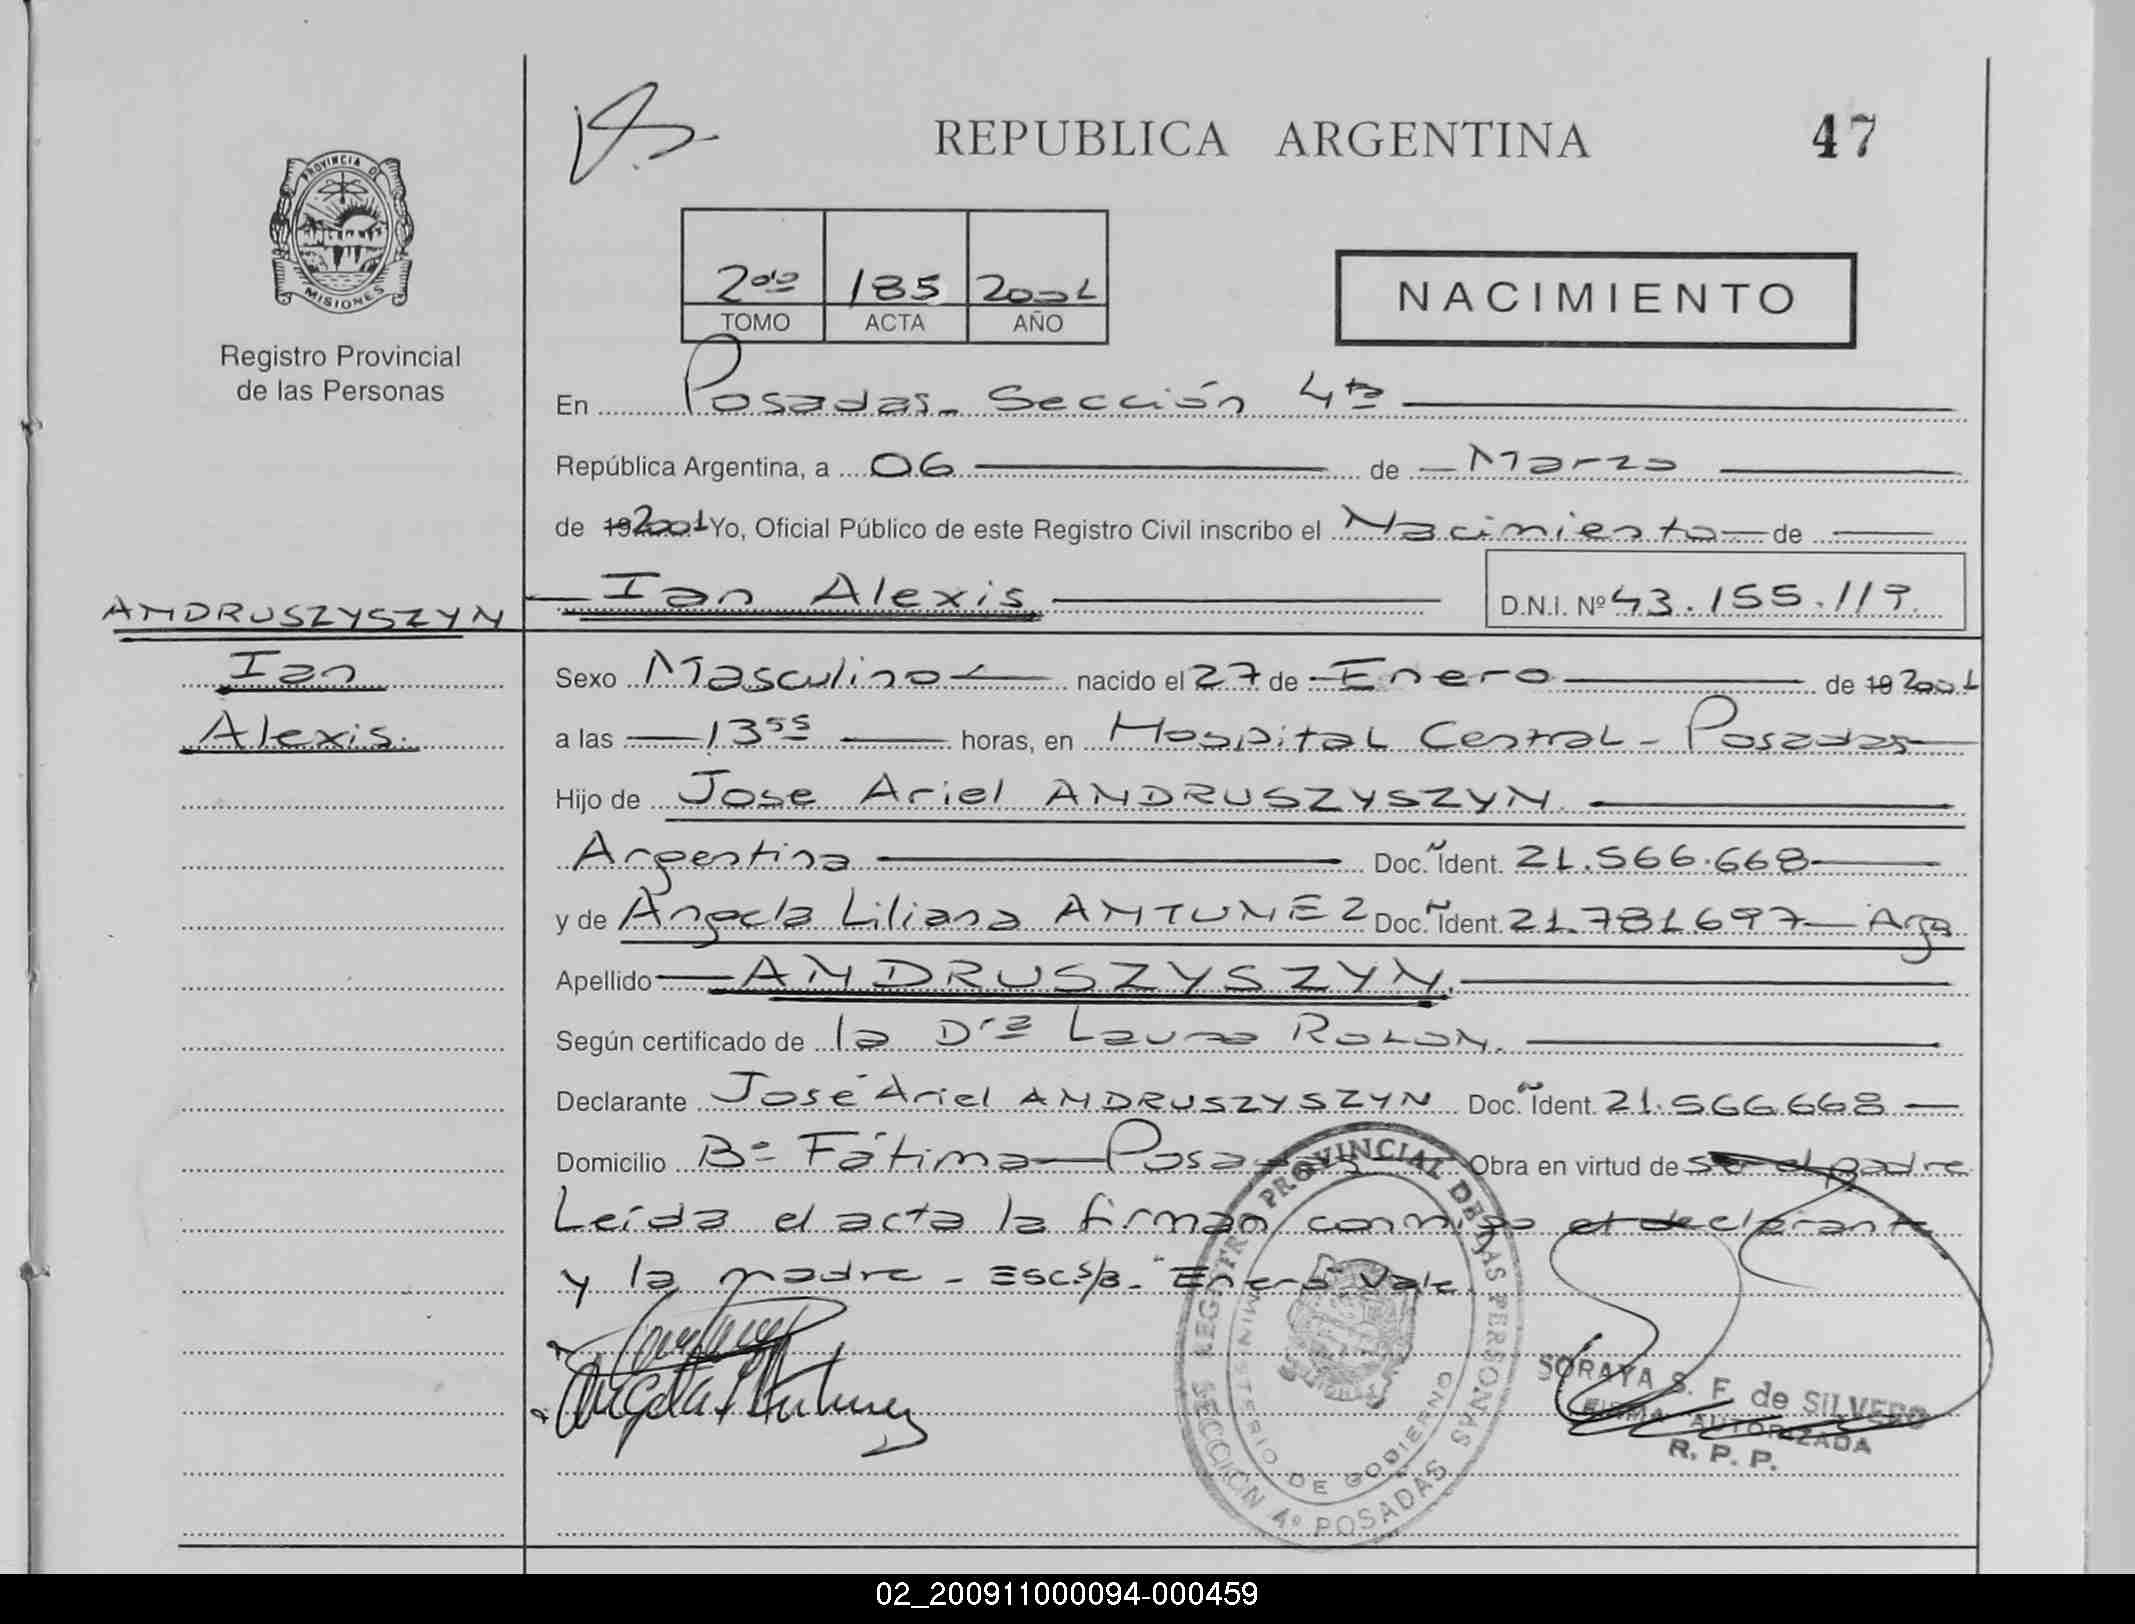 REPUBLICA ARGENTINA
47
PROVINCIA DE
MISIONES
Registro Provincial
de las Personas
2do 185 2001
TOMO ACTA AÑO
NACIMIENTO
En Posadas - Sección 4ta
República Argentina, a 06 de Marzo
de 19 2001 Yo, Oficial Público de este Registro Civil inscribo el Nacimiento de
Ian Alexis
D.N.I. Nº 43.155.119.
ANDRUSZYSZYN
Ian
Alexis.
Sexo Masculino nacido el 27 de Enero de 19 2001
a las 13 55 horas, en Hospital Central - Posadas
Hijo de Jose Ariel ANDRUSZYSZYN
Argentina Doc. Ident. 21.566.668
y de Angela Liliana ANTUNEZ Doc. Ident. 21.781697 - Arga
Apellido ANDRUSZYSZYN.
Según certificado de la Dra Laura ROLON.
Declarante José Ariel ANDRUSZYSZYN Doc. Ident. 21.566.668
Domicilio Bº Fátima - Posadas Obra en virtud de ser el padre
Leída el acta la firman conmigo el declarante
y la madre - Esc.s/b. "Enero" Vale
Angela L Antunez
REGISTRO PROVINCIAL DE LAS PERSONAS
MINISTERIO DE GOBIERNO
SECCION 4º POSADAS
SORAYA S. F. de SILVERO
FIRMA AUTORIZADA
R. P. P.
02_200911000094-000459